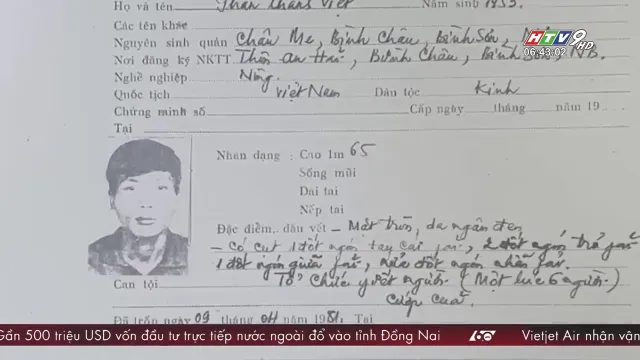 Họ và tên Phan Thanh Việt Năm sinh 1953.
HTV9 HD
06:43:02
Các tên khác
Nguyên sinh quán Châu Me, Bình Châu, Bình Sơn,
Nơi đăng ký NKTT Thôn An Hải, Bình Châu, Bình Sơn, NB.
Nghề nghiệp Nông.
Quốc tịch Việt Nam Dân tộc Kinh
Chứng minh số Cấp ngày tháng năm 19
Tại
Nhân dạng : Cao 1m 65
Sống mũi
Dái tai
Nếp tai
Đặc điểm, dấu vết – Mắt tròn, da ngăn đen
– Có cụt 1 đốt ngón tay cái , 2 đốt ngón trỏ
1 đốt ngón giữa , nửa đốt ngón nhẫn
Can tội Tổ chức vượt người. (Một lúc 6 người.)
cướp của.
Đã trốn ngày 09 tháng 04 năm 1981. Tại
Gần 500 triệu USD vốn đầu tư trực tiếp nước ngoài đổ vào tỉnh Đồng Nai 60 Vietjet Air nhận vận